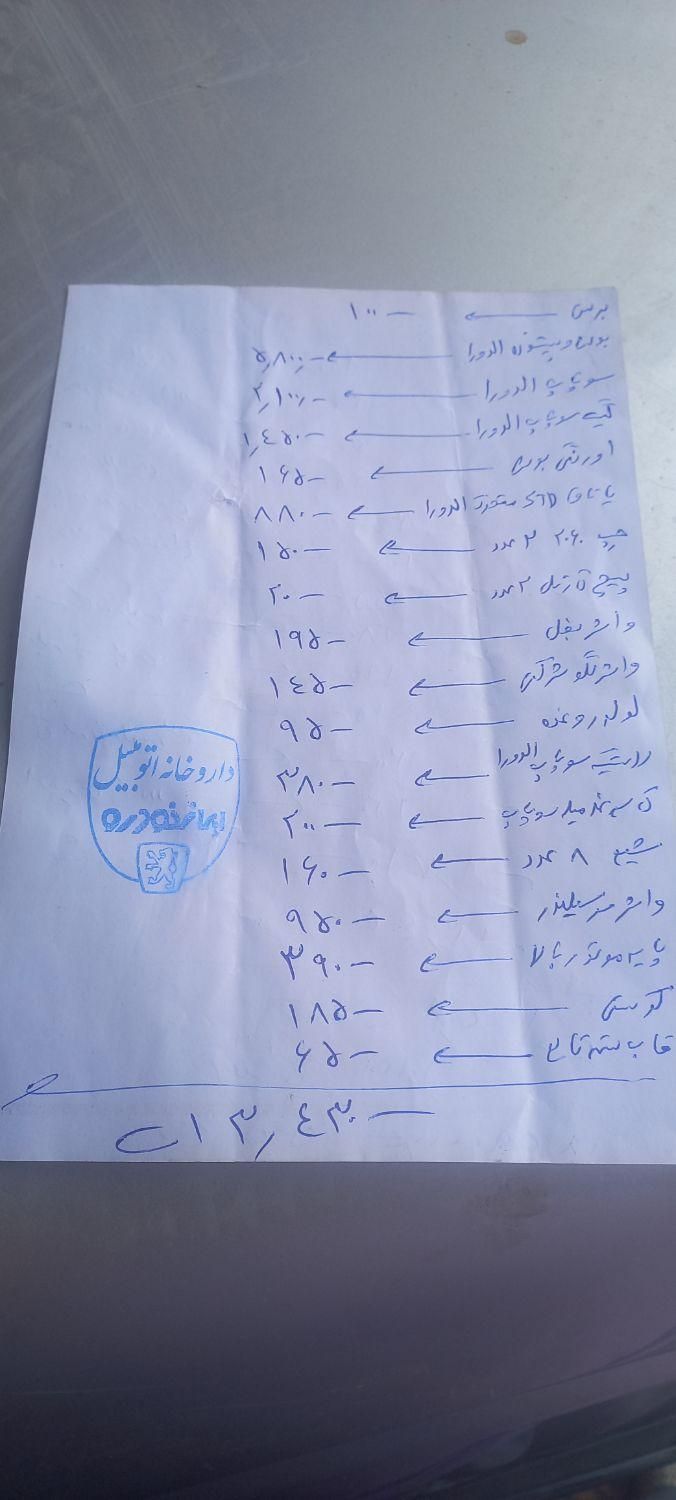 برس ← ۱۰۰ —
بوش و پیستون الدورا ← ۵,۸۰۰ —
سوپاپ الدورا ← ۲,۱۰۰ —
گیت سوپاپ الدورا ← ۱,۴۵۰ —
اورینگ بوش ← ۱۶۵ —
یاتاقان STD الدورا ← ۸۸۰ —
چسب ۲۰۶۰ ۲ عدد ← ۱۵۰ —
پیچ ۲ عدد ← ۲۰ —
واشر بغل ← ۱۹۵ —
واشر ← ۱۴۵ —
لوله روغن ← ۹۵ —
لاستیک سوپاپ الدورا ← ۳۸۰ —
سوپاپ ← ۲۰۰ —
شمع ۸ عدد ← ۱۶۰ —
واشر سرسیلندر ← ۹۵۰ —
پایه موتور بالا ← ۳۹۰ —
← ۱۸۵ —
قاب ← ۶۵ —
۱۳,۴۳۰ — ت
داروخانه اتومبیل
ایران خودرو